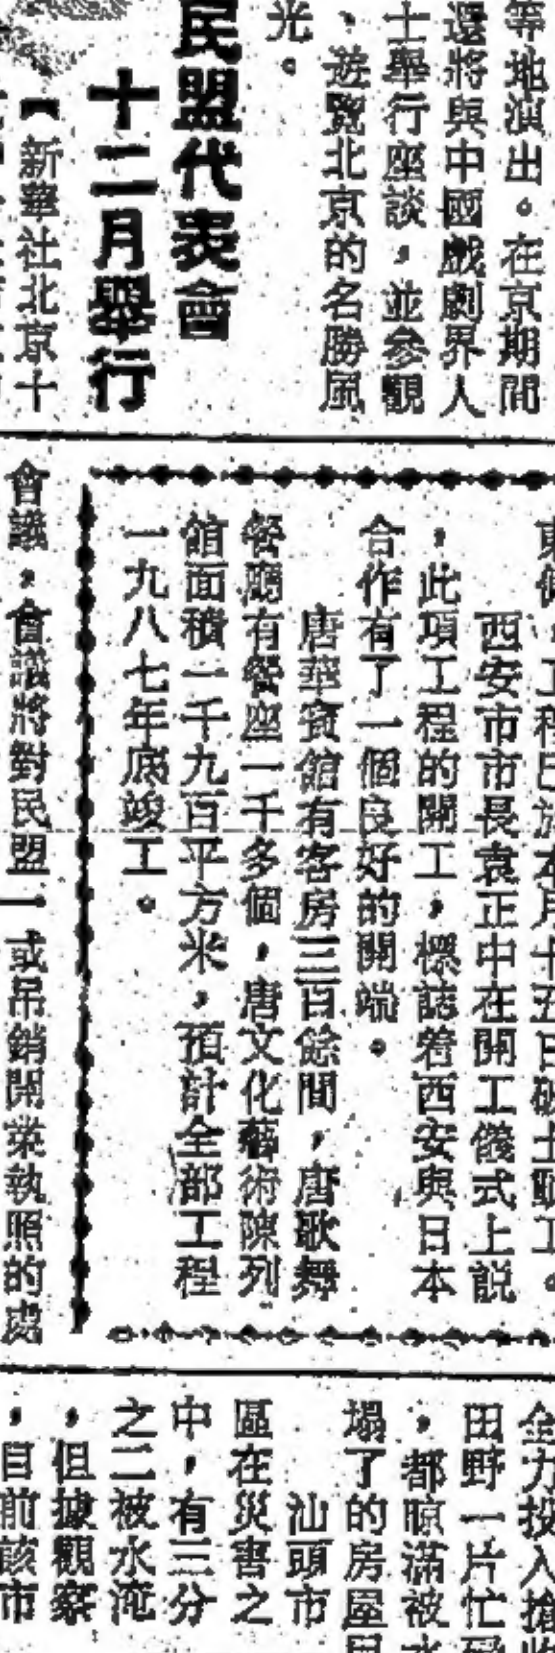 等地演出。在京期間
還將與中國戲劇界人
士舉行座談,並參觀
、遊覽北京的名勝風
光。
民盟代表會
十二月舉行
【新華社北京十
西安市市長袁正中在開工儀式上説
,此項工程的開工,標誌着西安與日本
合作有了一個良好的開端。
唐華賓館有客房三百餘間,唐歌舞
餐廳有餐座一千多個,唐文化藝術陳列
館面積一千九百平方米,預計全部工程
一九八七年底竣工。
會議,會議將對民盟一
或吊銷開業執照的處
全力投入搶
田野一片忙
,都晾滿被水
塌了的房屋
汕頭市
區在災害之
中,有三分
之二被水淹
,但據觀察
,目前該市